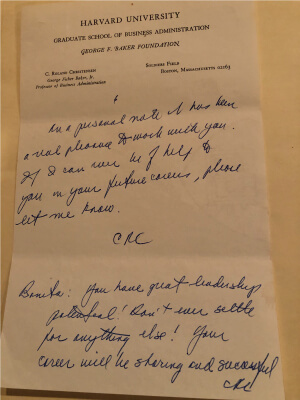 HARVARD UNIVERSITY
GRADUATE SCHOOL OF BUSINESS ADMINISTRATION
GEORGE F. BAKER FOUNDATION
C. ROLAND CHRISTENSEN
George Fisher Baker, Jr.
Professor of Business Administration
SOLDIERS FIELD
BOSTON, MASSACHUSETTS 02163
On a personal note it has been
a real pleasure to work with you.
If I can ever be of help to
you in your future career, please
let me know.
CRC
Bonita: You have great leadership
potential! Don't ever settle
for anything else! Your
career will be and successful
CRC